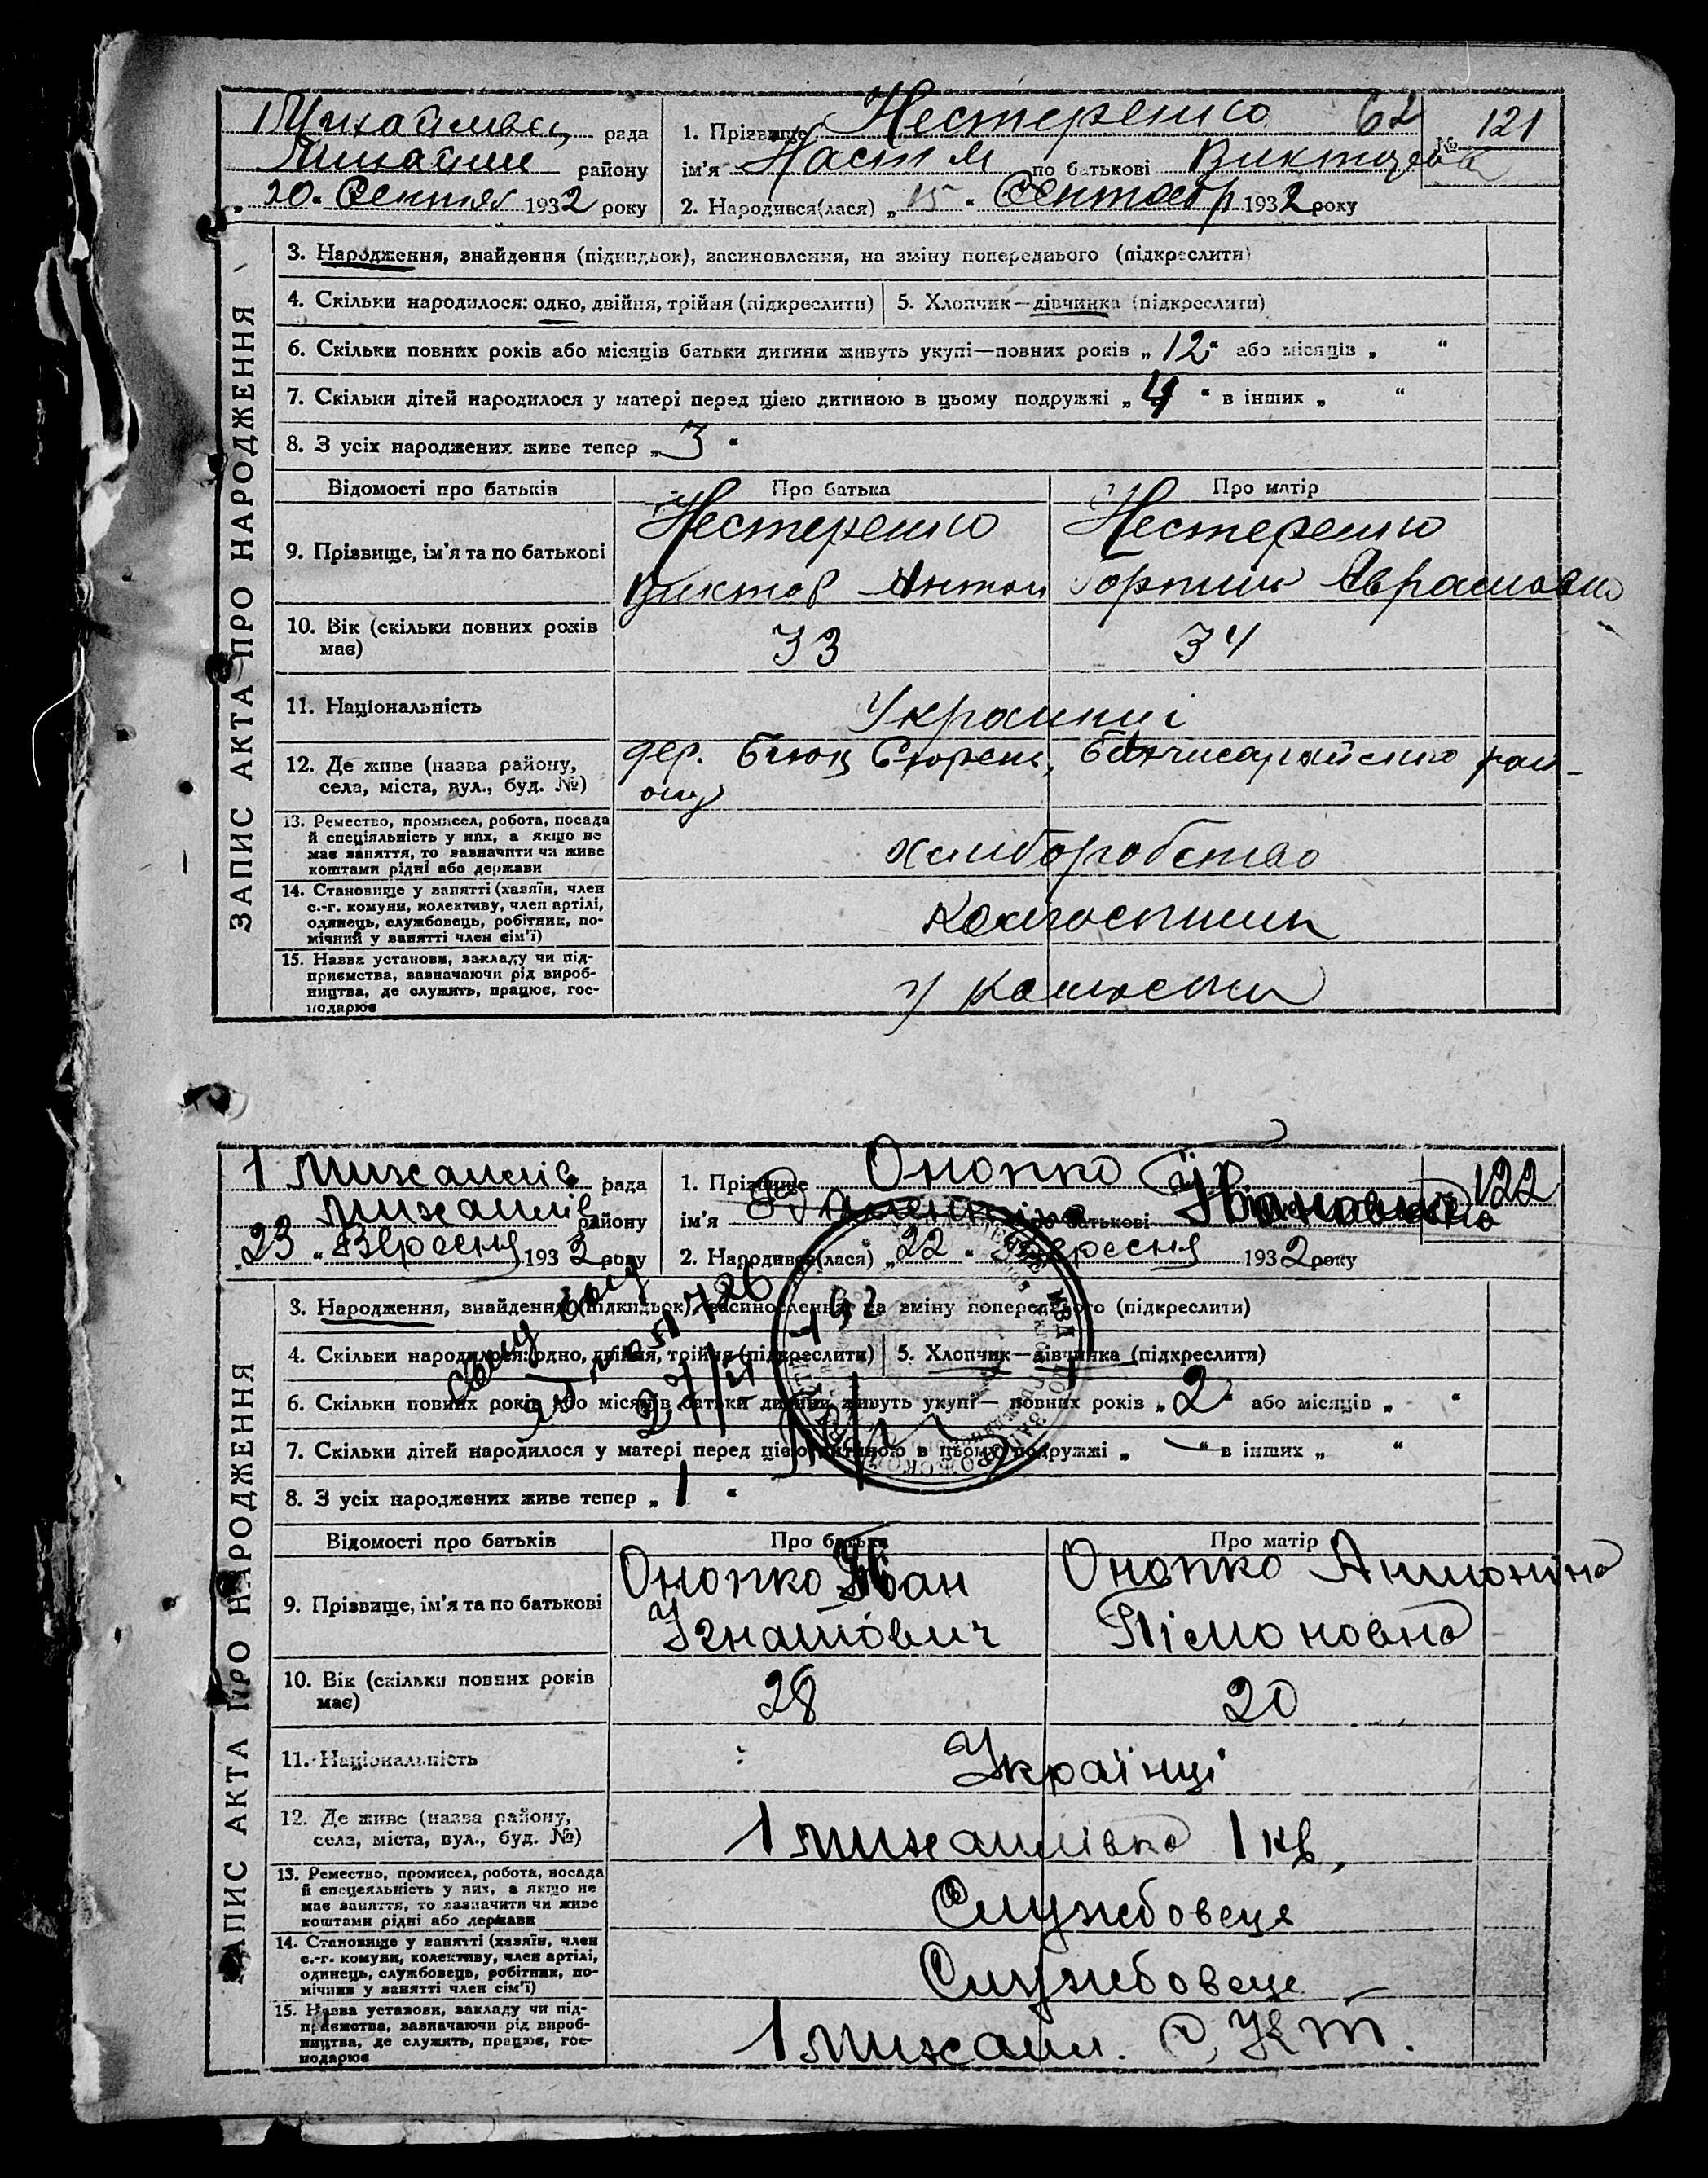 рада 1. Прізвище Нестеренко 62 № 121
району ім'я Настя по батькові
20 1932 року 2. Народився(лася) „15“ 1932 року
ЗАПИС АКТА ПРО НАРОДЖЕННЯ
3. Народження, знайдення (підкидьок), засиновлення, на зміну попереднього (підкреслити)
4. Скільки народилося: одно, двійня, трійня (підкреслити) 5. Хлопчик—дівчинка (підкреслити)
6. Скільки повних років або місяців батьки дитини живуть укупі—повних років „12“ або місяців „ “
7. Скільки дітей народилося у матері перед цією дитиною в цьому подружжі „4“ в інших „ “
8. З усіх народжених живе тепер „3“
Відомості про батьків Про батька Про матір
9. Прізвище, ім'я та по батькові Нестеренко Нестеренко
Виктор Антон
10. Вік (скільки повних років має) 33 34
11. Національність Украинці
12. Де живе (назва району, села, міста, вул., буд. №) дер. Биюк Сюрень, Бахчисарайского рай-
ону
13. Ремество, промисел, робота, посада й спеціяльність у них, а якщо не має заняття, то зазначити чи живе коштами рідні або держави хлиборобство
14. Становище у занятті (хазяїн, член с.-г. комуни, колективу, член артілі, одинець, службовець, робітник, помічний у занятті член сім'ї) колгоспник
15. Назва установи, закладу чи підприємства, зазначаючи рід виробництва, де служить, працює, господарює у колгоспи
1 Михайлів рада 1. Прізвище Онопко 122
Михайлів району ім'я по батькові
„23“ Вересня 1932 року 2. Народився(лася) „22“ Вересня 1932 року
ЗАПИС АКТА ПРО НАРОДЖЕННЯ
3. Народження, знайдення (підкидьок), засиновлення, на зміну попереднього (підкреслити)
4. Скільки народилося: одно, двійня, трійня (підкреслити) 5. Хлопчик—дівчинка (підкреслити)
6. Скільки повних років або місяців батьки дитини живуть укупі— повних років „2“ або місяців „ “
7. Скільки дітей народилося у матері перед цією дитиною в цьому подружжі „—“ в інших „ “
8. З усіх народжених живе тепер „1“
Відомості про батьків Про батька Про матір
9. Прізвище, ім'я та по батькові Онопко Іван Онопко Антонина
Ігнатович Пімоновна
10. Вік (скільки повних років має) 28 20
11. Національність Українці
12. Де живе (назва району, села, міста, вул., буд. №) 1 михайлівка 1 кв,
13. Ремество, промисел, робота, посада й спецеяльність у них, а якщо не має заняття, то зазначити чи живе коштами рідні або держави Службовеця
14. Становище у занятті (хазяїн, член с.-г. комуни, колективу, член артілі, одинець, службовець, робітник, помічник у занятті член сім'ї) Службовеце
15. Назва установи, закладу чи підприємства, зазначаючи рід виробництва, де служить, працює, господарює 1 михайл.